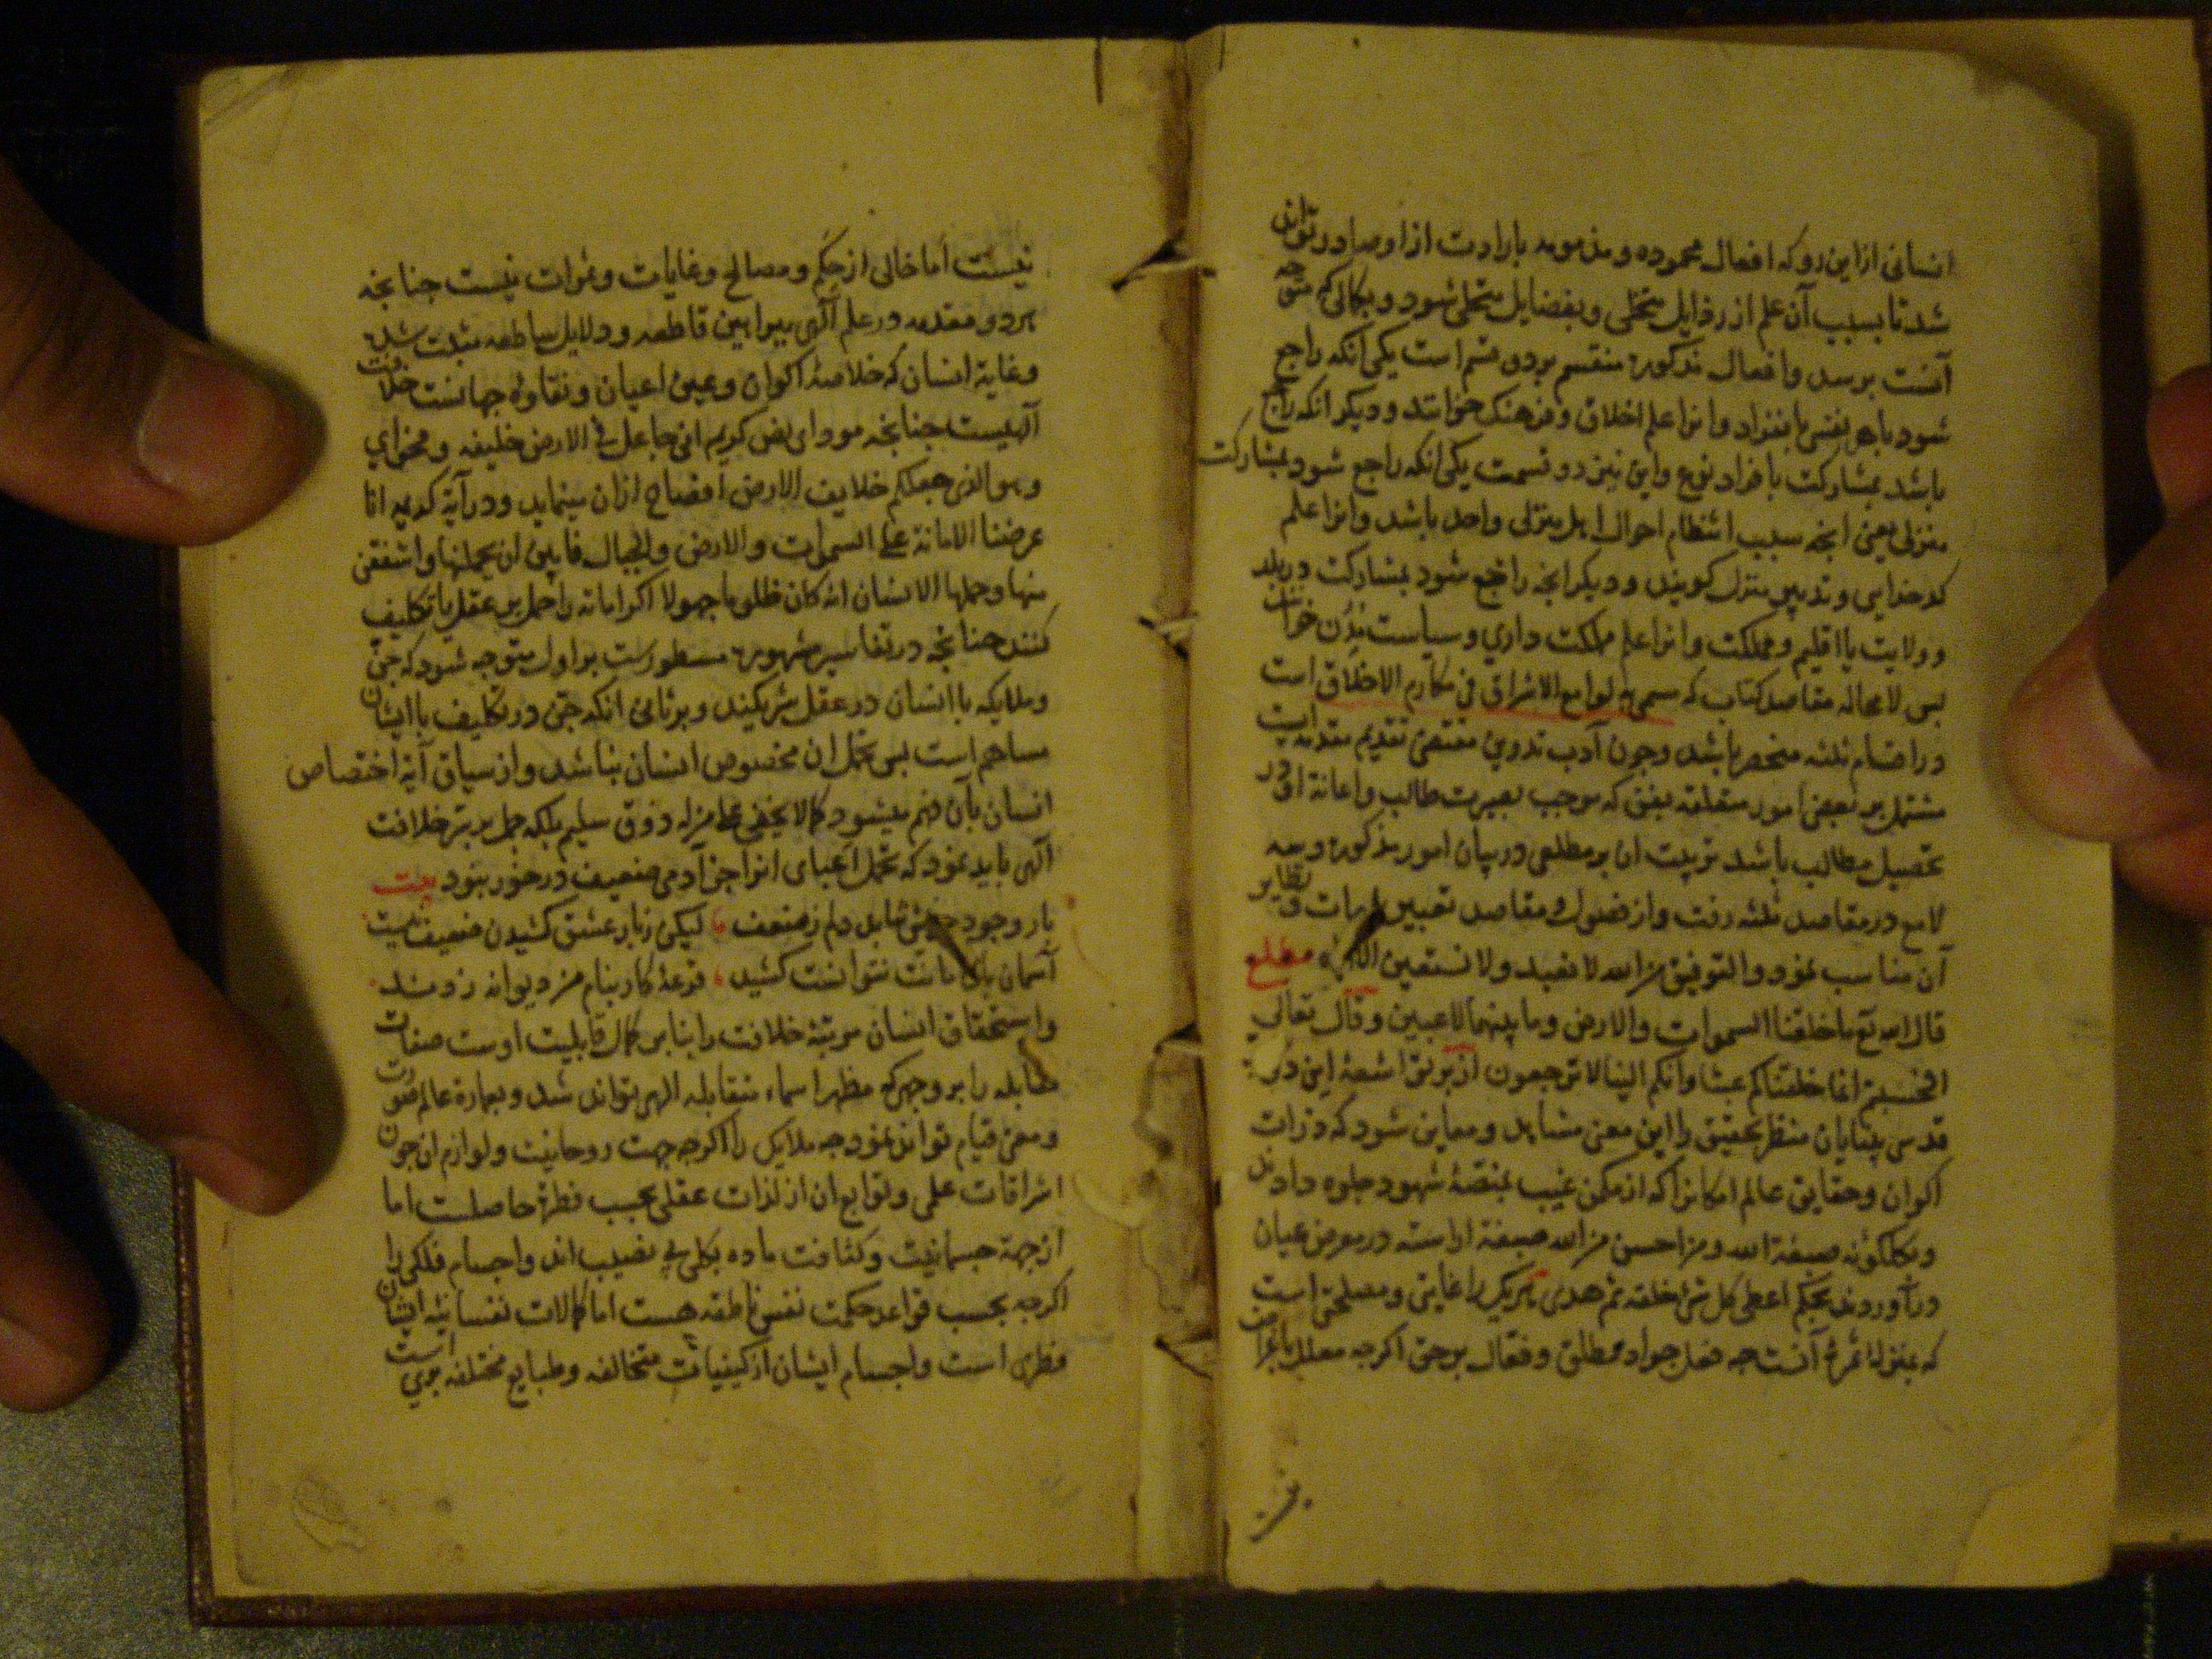 انسانی ازین رو که افعال محموده و مذمومه بارادت ازو صادر تواند
شد تا بسبب آن علم از رذایل متخلی و بفضایل متحلی شود و بکمالی که متوجه
آنست برسد و افعال مذکوره منقسم بر دو قسم است یکی انکه راجع
شود با هر نفسی بانفراد و انرا علم اخلاق و فرهنک خوانند و دیکر انکه راجع
باشد بمشارکت با فراد نوع و این نیز دو قسمت یکی انکه راجع شود بمشارکت
منزلی یعنی انچه سبب انتظام احوال اهل منزلی واحد باشد و انرا علم
کدخدایی و تدبیر منزل کویند و دیکر انچه راجع شود بمشارکت در بلد
و ولایت یا اقلیم و مملکت و انرا علم ملکت داری و سیاست مدن خوانند
بس لا محاله مقاصد کتاب که مسمی به لوامع الاشراق فی مکارم الاخلاق است
در اقسام ثلثه منحصر باشد و چون آدب تدوین مقتضی تقدیم مقدمه ایست
مشتمل بر بعضی امور متعلقه بفن که موجب بصیرت طالب و اعانة او در
تحصیل مطالب باشد ترتیب ان بر مطلعی در بیان امور مذکوره و سه
لامع در مقاصد ثلثه رفت و از فصول و مقاصد تعبیر و نظایر
آن مناسب نمود و التوفیق من الله لا نعبد و لا نستعین الا ایاه مطلع
قال الله تع ما خلقنا السموات والارض وما بینهما لاعبین وقال تعالی
افحسبتم انما خلقناکم عبثا وانکم الینا لا ترجعون از پرتو اشعهٔ این در
قدسی بینایان منظر تحقیق را این معنی مشاهد و معاین شود که ذرات
اکوان و حقایق عالم امکانرا که از مکمن غیب بمنصهٔ شهود جلوه دادند
و بکلکونه صبغة الله ومن احسن من الله صبغة اراسته در معرض عیان
در آوردند بحکم اعطی کل شی خلقه ثم هدی هر یک را غایتی و مصلحتی است
که بمنزلهٔ ثمرهٔ آنست چه فعل جواد مطلق و فعال برحق اکرچه معلل باغراض
نیست اما خالی از حکم و مصالح و غایات و ثمرات نیست چنانچه
هر دو مقدمه در علم آلهی ببراهین قاطعه و دلایل ساطعه مثبت شده
و غایة انسان که خلاصهٔ اکوان و عین اعیان و نقاوهٔ جهانست خلافت
آلهیست چنانچه مودای نص کریم انی جاعل فی الارض خلیفه و فحوای
و هو الذی جعلکم خلایف الارض افصاح ازان مینماید و در آیة کریمه انا
عرضنا الامانة علی السموات والارض والجبال فابین ان یحملنها واشفقن
منها وحملها الانسان انه کان ظلوما جهولا اکر امانه را حمل بر عقل یا تکلیف
کنند چنانچه در تفاسیر مشهوره مسطورست بر اول متوجه شود که جن
و ملایکه با انسان در عقل شریکند و بر ثانی انکه جن در تکلیف با ایشان
مساهم است بس تحمل ان مخصوص انسان نباشد و از سیاق آیة اختصاص
انسان بآن فهم میشود کما لا یخفی علی من له ذوق سلیم بلکه حمل بر سر خلافت
آلهی باید نمود که تحمل اعبای انرا جز آدمی ضعیف در خور نبود بیت
بار وجود دلم ز ضعف لیکن ز بار عشق کشیدن ضعیف نیست
آسمان بار امانت نتوانست کشید قرعهٔ کار بنام من دیوانه زدند
و استحقاق انسان مرتبهٔ خلافت را بنا بر کمال قابلیت اوست صفات
متقابله را بر وجهی که مظهر اسماء متقابله الهی تواند شد و بعمارة عالم صورت
و معنی قیام تواند نمود چه ملایک را اکرچه جهت روحانیت و لوازم ان چون
اشراقات علمی و توابع ان از لذات عقلی بحسب فطرة حاصلست اما
از جهة جسمانیت و کثافت ماده بکلی بی نصیب اند و اجسام فلکی را
اکرچه بحسب قواعد حکمت نفس ناطقه هست اما کمالات نفسانیه ایشان
فطری است و اجسام ایشان از کیفیات متخالفه و طبایع مختلفه بری است